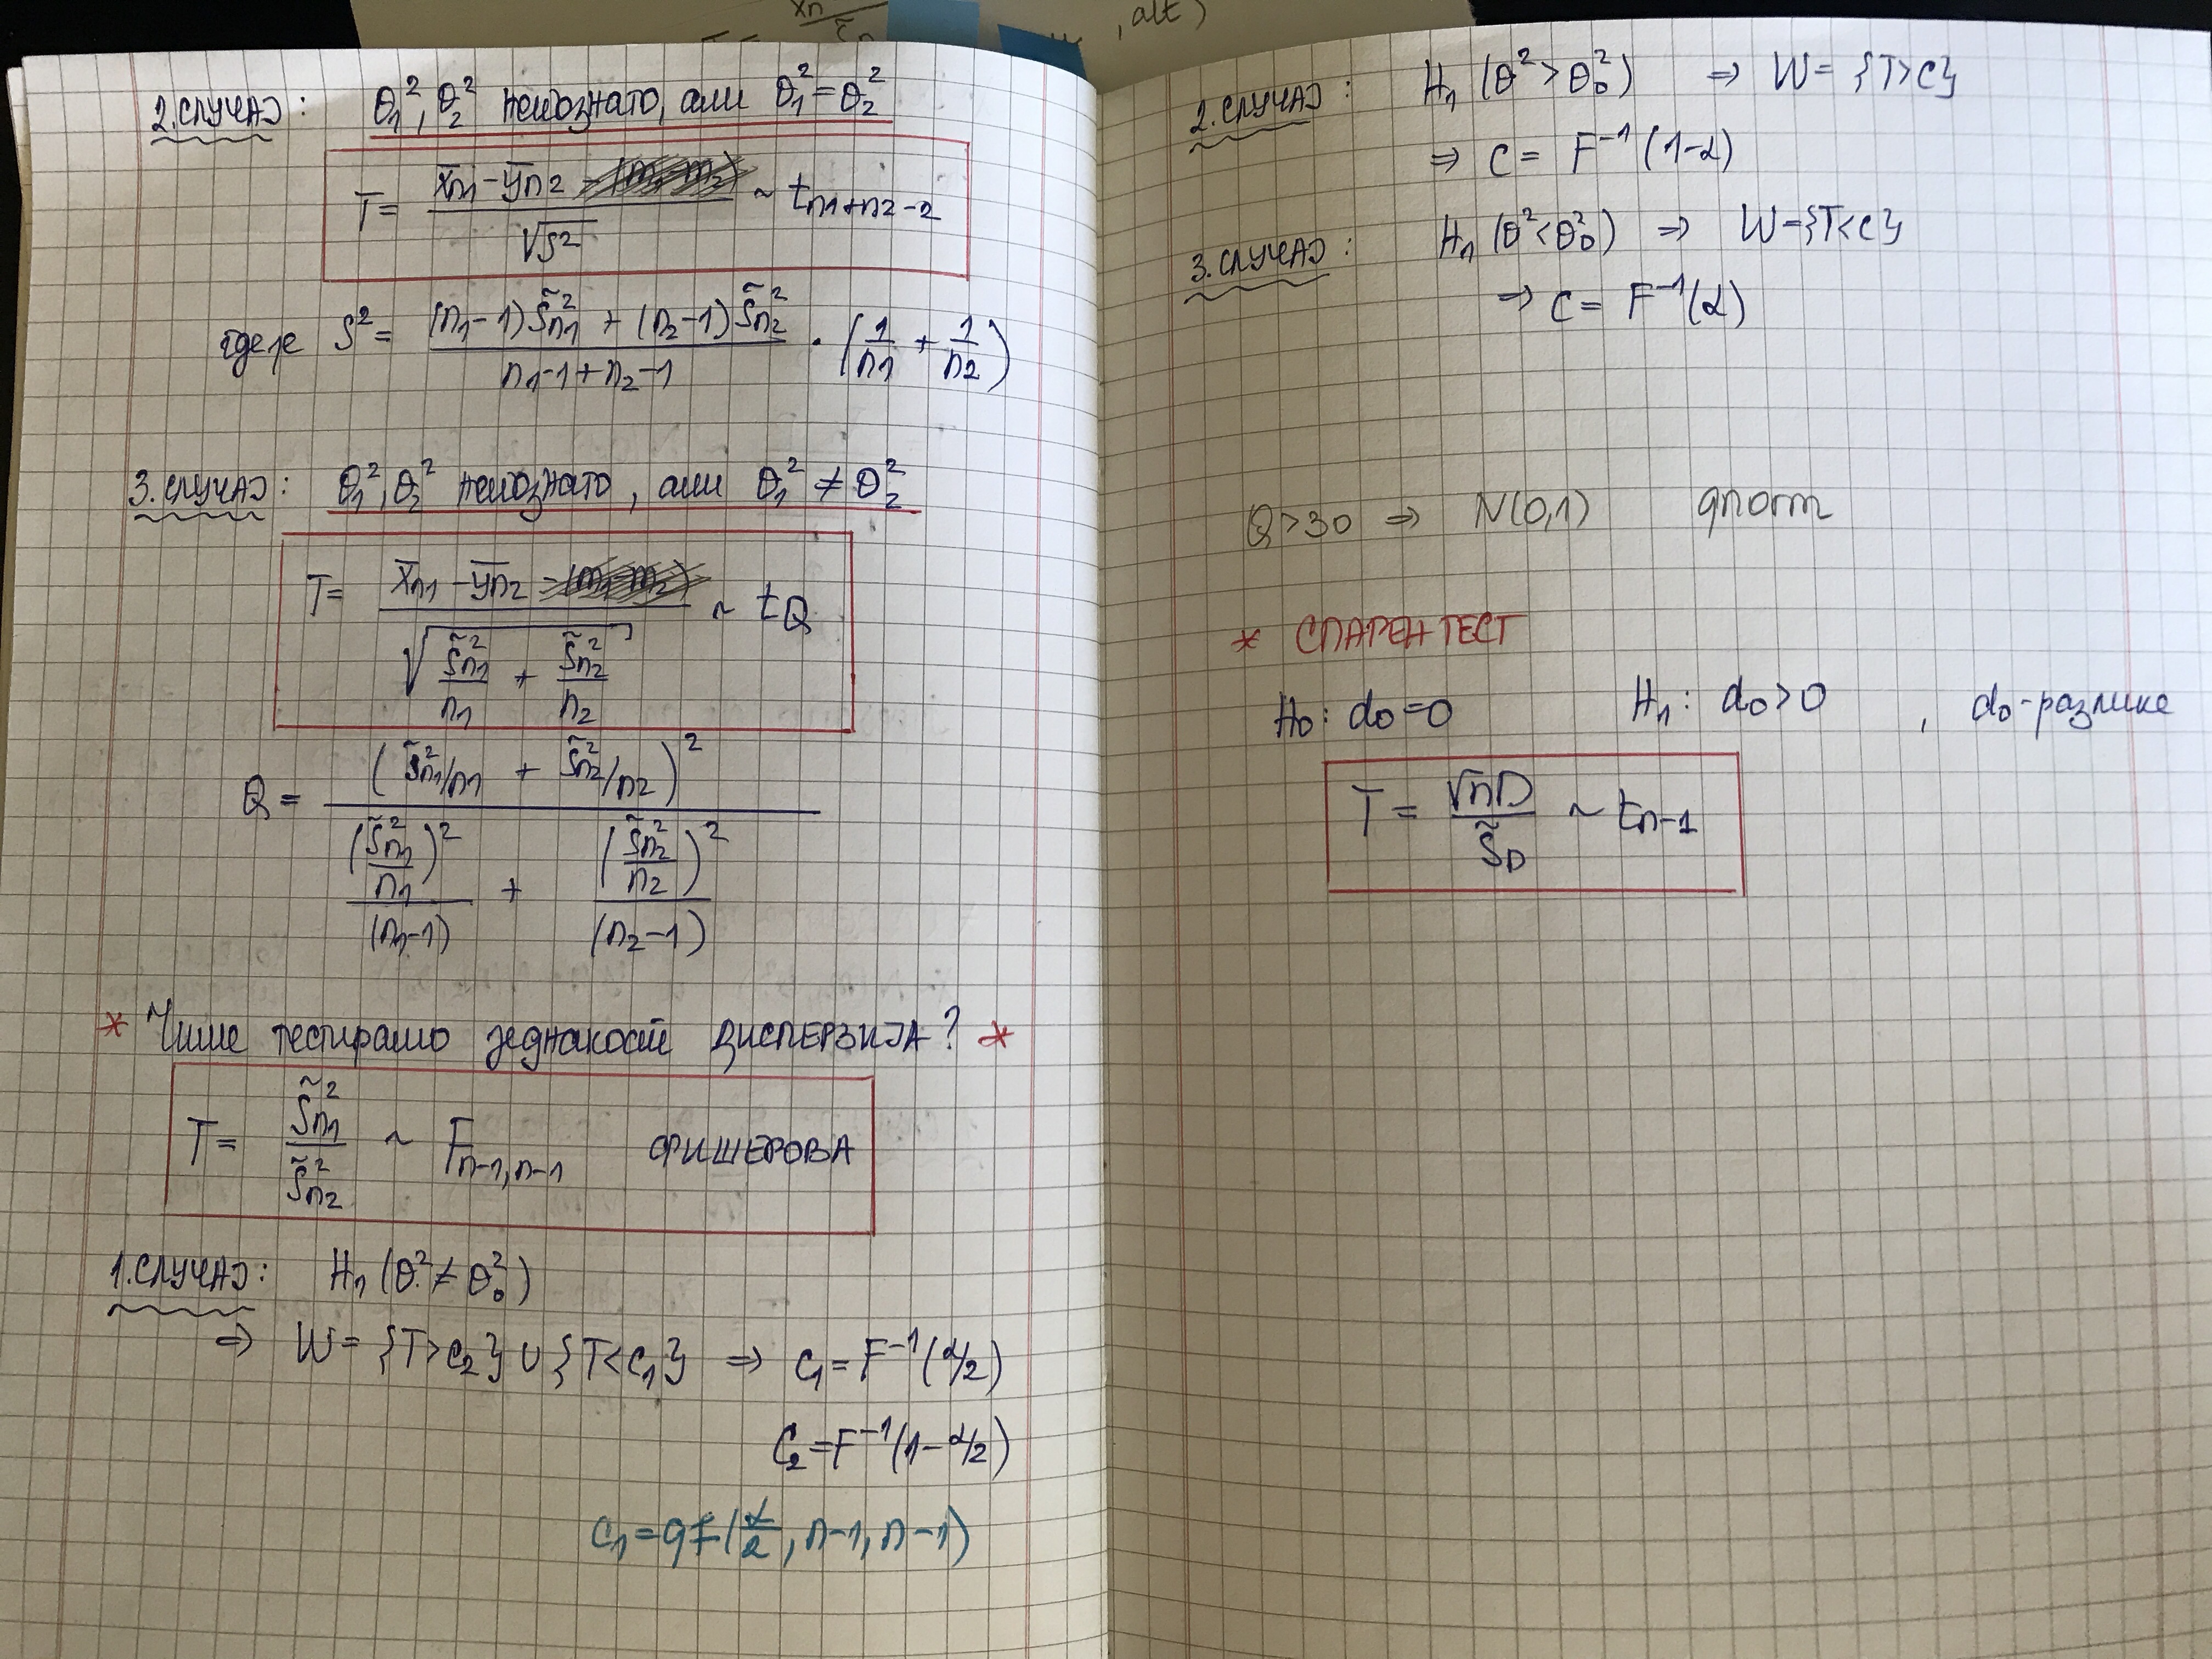 2.СЛУЧАЈ: θ₁², θ₂² непознато, али θ₁² = θ₂²
T = (x̄n1 − ȳn2) / √S² ~ tn1+n2−2
где је S² = ((n1−1)S̃²n1 + (n2−1)S̃²n2) / (n1−1+n2−1) · (1/n1 + 1/n2)
3.СЛУЧАЈ: θ₁², θ₂² непознато, али θ₁² ≠ θ₂²
T = (x̄n1 − ȳn2) / √(S̃²n1/n1 + S̃²n2/n2) ~ tQ
Q = (S̃²n1/n1 + S̃²n2/n2)² / ((S̃²n1/n1)²/(n1−1) + (S̃²n2/n2)²/(n2−1))
* Чиме тестирамо једнакост ДИСПЕРЗИЈА? *
T = S̃²n1 / S̃²n2 ~ Fn−1,n−1 ФИШЕРОВА
1.СЛУЧАЈ: H₁ (θ² ≠ θ₀²)
⇒ W = {T>c₂} ∪ {T<c₁} ⇒ c₁ = F⁻¹(α/2)
c₂ = F⁻¹(1−α/2)
c₁ = qF(α/2, n−1, n−1)
, alt)
2.СЛУЧАЈ: H₁ (θ² > θ₀²) ⇒ W = {T>c}
⇒ c = F⁻¹(1−α)
3.СЛУЧАЈ: H₁ (θ² < θ₀²) ⇒ W = {T<c}
⇒ c = F⁻¹(α)
Q>30 ⇒ N(0,1) qnorm
* СПАРЕН ТЕСТ
H₀: d₀=0 H₁: d₀>0 , d₀-разлике
T = √n D / S̃D ~ tn−1